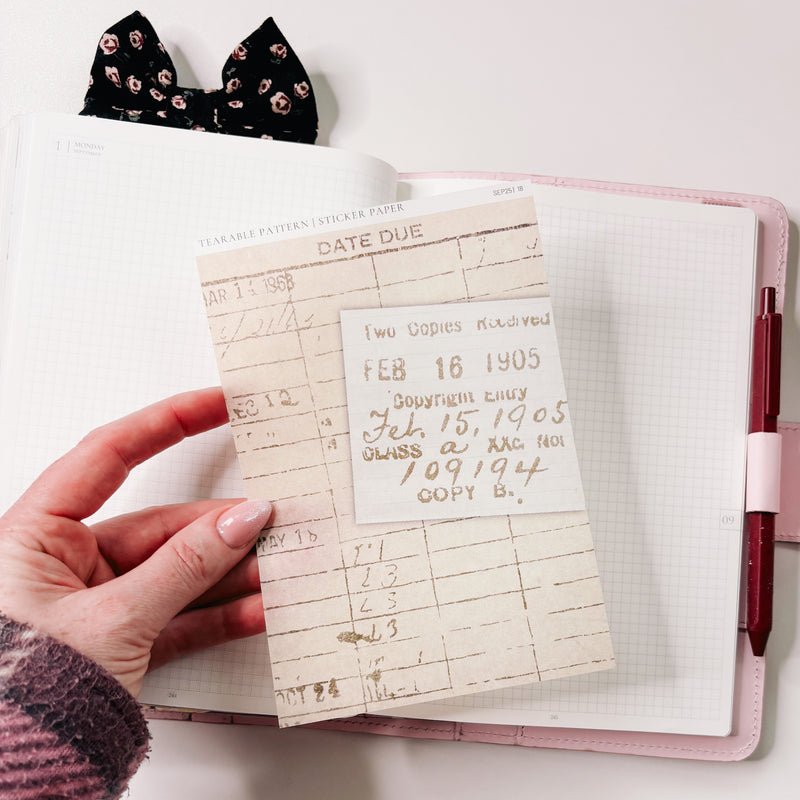 1 MONDAY
SEPTEMBER
TEARABLE PATTERN | STICKER PAPER
SEP25 | 18
DATE DUE
MAR 14 1968
Two Copies Received
FEB 16 1905
Copyright Entry
Feb. 15, 1905
CLASS a XXc. No.
109194
COPY B.
EC 12
MAY 16
23
23
23
OCT 24
09